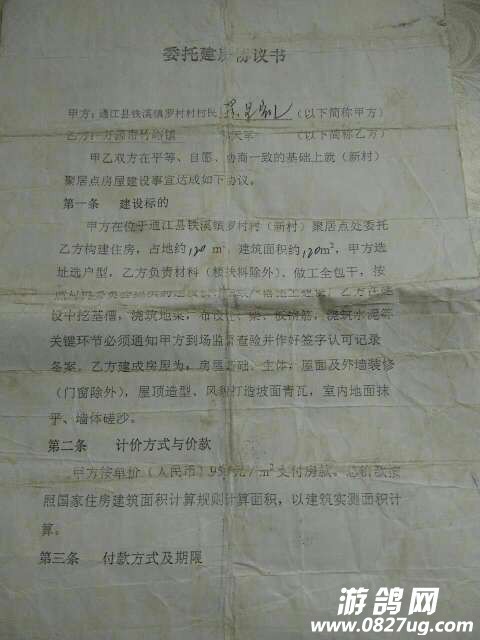 委托建房协议书
甲方：通江县铁溪镇罗村村村民（以下简称甲方）
乙方：万源市竹峪镇（以下简称乙方）
甲乙双方在平等、自愿、协商一致的基础上就（新村）
聚居点房屋建设事宜达成如下协议。
第一条 建设标的
甲方在位于通江县铁溪镇罗村村（新村）聚居点处委托
乙方构建住房，占地约120m²，建筑面积约120m²，甲方选
址选户型，乙方负责材料（除外）、做工全包干，按
乙方在建
设中挖基槽，浇筑地梁，布设柱、梁、板钢筋，浇筑水泥等
关键环节必须通知甲方到场监督查验并作好签字认可记录
备案。乙方建成房屋为：房屋基础、主体，屋面及外墙装修
（门窗除外），屋顶造型、风貌打造坡面青瓦，室内地面抹
平、墙体磋沙。
第二条 计价方式与价款
甲方按单价（人民币）元/m²支付房款。总价款按
照国家住房建筑面积计算规则计算面积，以建筑实测面积计
算。
第三条 付款方式及期限
游鸽网
www.0827ug.com